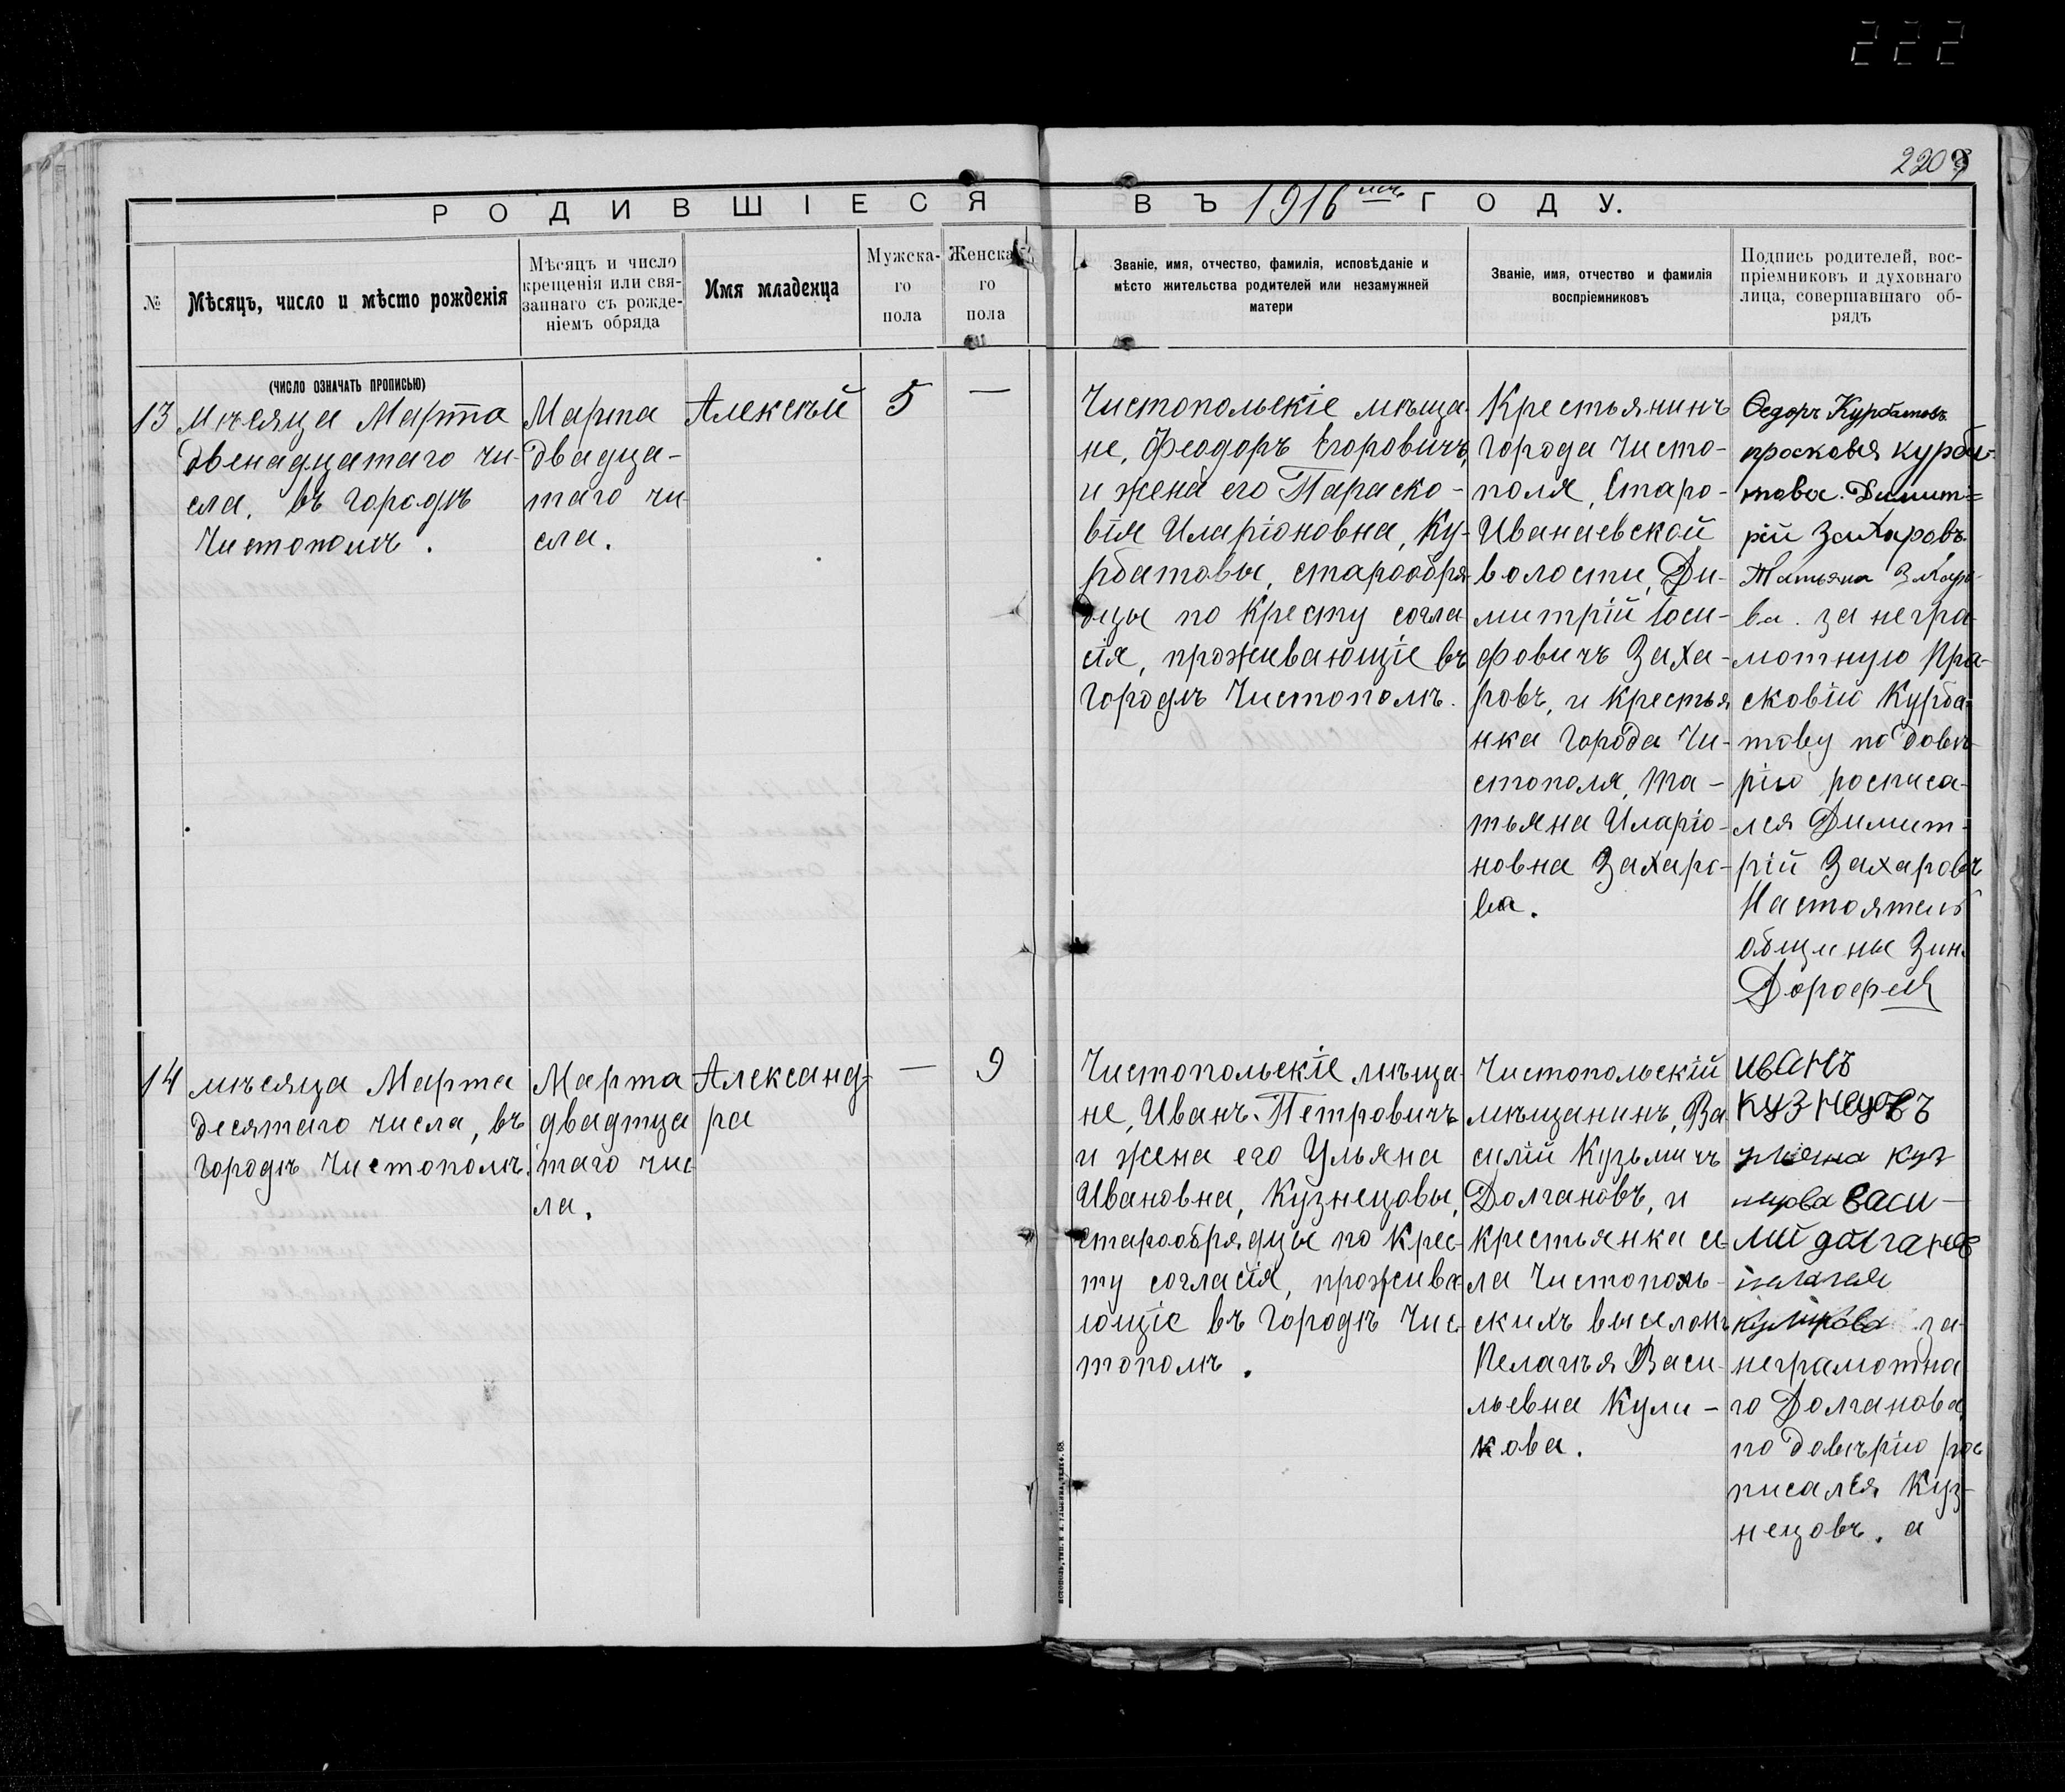 222
220
РОДИВШІЕСЯ ВЪ 1916 мъ ГОДУ.
№
Мѣсяцъ, число и мѣсто рожденія
Мѣсяцъ и число
крещенія или свя-
заннаго съ рожде-
ніемъ обряда
Имя младенца
Мужска-
го
пола
Женска-
го
пола
Званіе, имя, отчество, фамилія, исповѣданіе и
мѣсто жительства родителей или незамужней
матери
Званіе, имя, отчество и фамилія
воспріемниковъ
Подпись родителей, вос-
пріемниковъ и духовнаго
лица, совершавшаго об-
рядъ
(ЧИСЛО ОЗНАЧАТЬ ПРОПИСЬЮ)
13
Мѣсяца Марта
двенадцатаго чи-
сла, въ городѣ
Чистополѣ.
Марта
двадца-
таго чи
сла.
Алексѣй
5
—
Чистопольскіе мѣща-
не, Феодоръ Егоровичъ,
и жена его Параско-
вія Иларіоновна, Ку-
рбатовы, старообря-
дцы по кресту согла
сія, проживающіе въ
городѣ Чистополѣ.
Крестьянинъ
города Чисто-
поля, Старо-
Иванаевской
волости, Ди-
митрій Іоси-
фовичъ Заха-
ровъ, и крестья
нка города Чи-
стополя, Та-
тьяна Иларіо-
новна Захаро-
ва.
Ѳедоръ Курбатовъ
прасковья курба-
това. Димит=
рій Захаровъ.
Татьяна Захаро-
ва. за негра-
мотную Пра-
сковію Курба-
тову по довѣ-
рію росписа-
лся Димит-
рій Захаровъ
Настоятель
общины Зин.
Дорофеев
14
мѣсяца Марта
десятаго числа, въ
городѣ Чистополѣ.
Марта
двадтца
таго чис
ла.
Александ-
ра
—
9
Чистопольскіе мѣща-
не, Иванъ Петровичъ
и жена его Ульяна
Ивановна, Кузнецовы,
старообрядцы по крес-
ту согласія, прожива-
ющіе въ городѣ Чис-
тополѣ.
Чистопольскій
мѣщанинъ, Ва
силій Кузьмичъ
Долгановъ, и
крестьянка се-
ла Чистополь-
скихъ выселокъ
Пелагѣя Васи-
льевна Кули-
кова.
иванъ
кузнецовъ
ульяна куз
нецова васи-
лий долганов
пелагея
куликова за
неграмотна
го Долганова
по довѣрію рос
писался Куз-
нецовъ. а